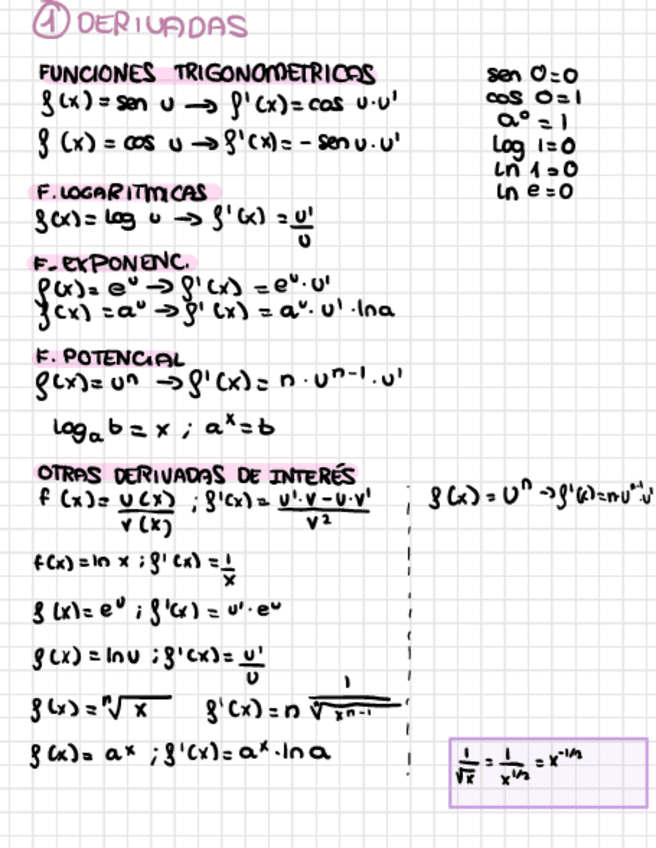 ① DERIVADAS
FUNCIONES TRIGONOMETRICAS
f(x) = sen u → f'(x) = cos u·u'
f (x) = cos u → f'(x) = - sen u·u'
sen 0=0
cos 0=1
a⁰ = 1
log 1=0
Ln 1=0
ln e=0
F. LOGARITMICAS
f(x) = log u → f'(x) = u'/u
F- EXPONENC.
f(x) = eᵘ → f'(x) = eᵘ·u'
f(x) = aᵘ → f'(x) = aᵘ·u'·lna
F. POTENCIAL
f(x) = uⁿ → f'(x) = n·uⁿ⁻¹·u'
logₐ b = x ; aˣ = b
OTRAS DERIVADAS DE INTERÉS
f (x) = u(x)/v(x) ; f'(x) = u'·v-u·v'/v²
f(x) = ln x ; f'(x) = 1/x
f(x) = eᵘ ; f'(x) = u'·eᵘ
f(x) = lnu ; f'(x) = u'/u
f(x) = ⁿ√x f'(x) = n 1/ⁿ√xⁿ⁻¹
f(x) = aˣ ; f'(x) = aˣ·ln a
f(x) = uⁿ → f'(x) = n·uⁿ⁻¹·u'
1/√x = 1/x^1/2 = x^-1/2